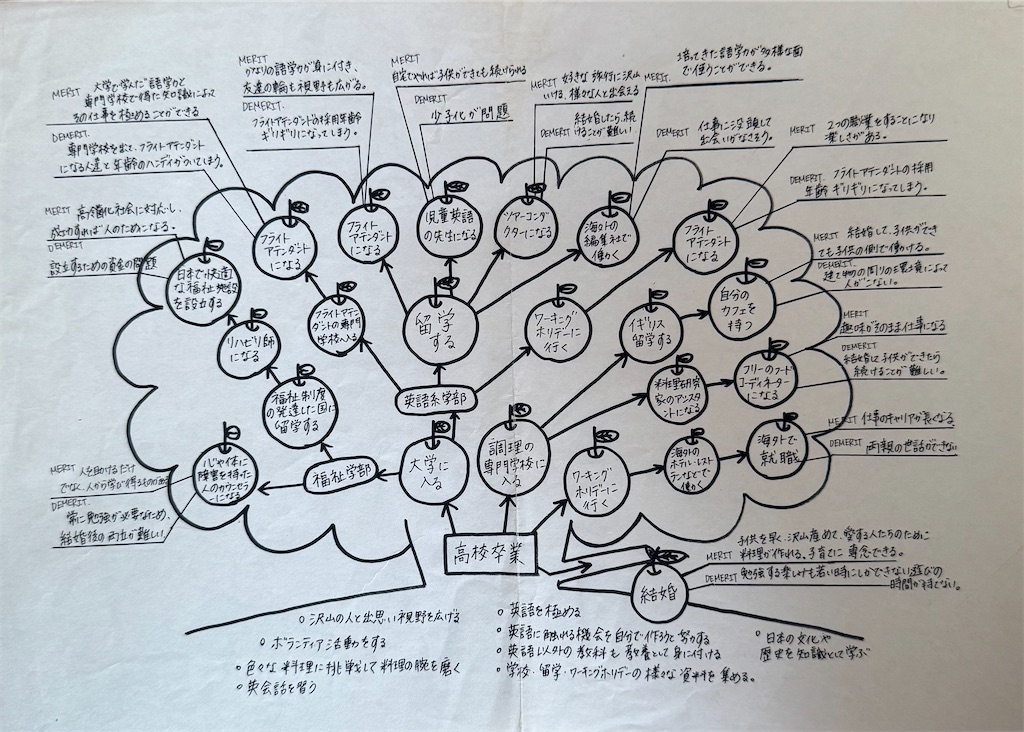 MERIT 大学で学んだ語学力と
専門学校で得た知識によって
その仕事を極めることができる
DEMERIT.
専門学校を出て、フライトアテンダント
になる人達と年齢のハンディがついてしまう。
MERIT
かなりの語学力が身に付き、
友達の輪も視野も広がる。
DEMERIT.
フライトアテンダントの採用年齢
ギリギリになってしまう。
MERIT
自宅でやれば子供ができても続けられる
DEMERIT
少子化が問題
MERIT 好きな旅行に沢山
いける、様々な人と出会える
DEMERIT 結婚したら、続
けることが難しい
MERIT.
培ってきた語学力が多様な面
で使うことができる。
DEMERIT 仕事に没頭して
出会いがなさそう。
MERIT 2つの職業をすることになり
楽しさがある。
DEMERIT. フライトアテンダントの採用
年齢ギリギリになってしまう。
MERIT 高齢化社会に対応し、
成功すれば人のためになる。
DEMERIT
設立するための資金の問題
MERIT 結婚して、子供ができ
ても子供の側で働かける。
DEMERIT
建て物の周りの環境によって
人がこない。
MERIT
趣味がそのまま仕事になる
DEMERIT
結婚して子供ができたら
続けることが難しい。
MERIT 仕事のキャリアが長くなる
DEMERIT 両親の世話ができない
MERIT 人を助けるだけ
でなく、人から学び得るものがある
DEMERIT.
常に勉強が必要なため、
結婚後の両立が難しい
フライト
アテンダントに
なる
フライト
アテンダント
になる
児童英語
の先生になる
ツアーコンダ
クターになる
海外の
編集社で
働く
フライト
アテンダントに
なる
日本で快適
な福祉施設
を設立する
フライトアテン
ダントの専門
学校へ入る
留学
する
ワーキング
ホリデーに
行く
イギリス
留学する
自分の
カフェを
持つ
リハビリ師
になる
福祉制度
の発達した国に
留学する
英語系学部
料理研究
家のアシスタ
ントになる
フリーのフード
コーディネーター
になる
心や体に
障害を持った
人のカウンセラ
ーになる
福祉学部
大学に
入る
調理の
専門学校に
入る
ワーキング
ホリデーに
行く
海外の
ホテル・レスト
ランなどで
働く
海外で
就職
高校卒業
結婚
子供を早く、沢山産めて、愛する人たちのために
MERIT 料理が作れる、子育てに専念できる。
DEMERIT 勉強する楽しみも若い時にしかできない遊びの
時間がすくない。
○ 沢山の人と出思い視野を広げる
○ ボランティア活動をする
○ 色々な料理に挑戦して料理の腕を磨く
○ 英会話を習う
○ 英語を極める
○ 英語に触れる機会を自分で作ろうと努力する
○ 英語以外の教科も教養として身に付ける
○ 学校・留学・ワーキングホリデーの様々な資料を集める。
○ 日本の文化や
歴史を知識として学ぶ